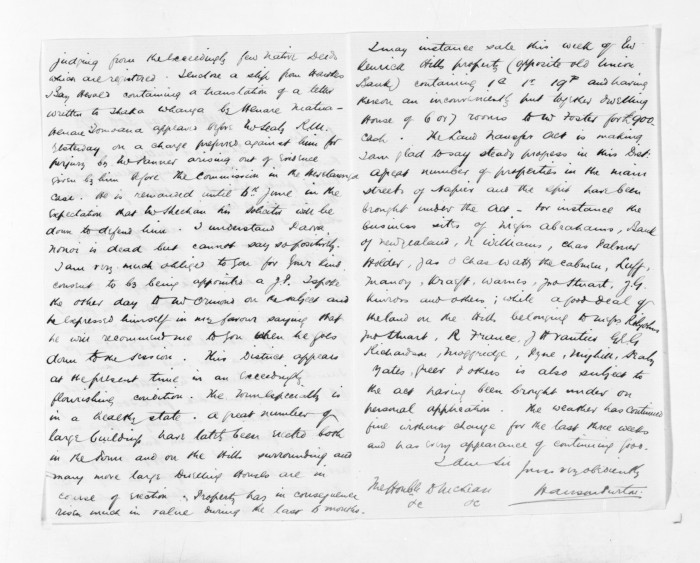 judging from the exceedingly few Native Deeds
which are registered. I enclose a slip from Hawkes
Bay Herald containing a translation of a letter
written to Ihaka Whanga by Henare Matua -
Henare Tomoana appeared before Mr Sealy R.M.
yesterday on a charge preferred against him for
perjury by Mr Tanner arising out of evidence
given by him before the Commission in the Heretaunga
case. He is remanded until 6th June in the
expectation that Mr Sheehan his solicitor will be
down to defend him. I understand
is dead but cannot say so positively.
I am very much obliged to you for your kind
consent to my being appointed a J.P. I spoke
the other day to Mr Ormond on the subject and
he expressed himself in my favour saying that
he will recommend me to you when he goes
down to the session. This District appears
at the present time in an exceedingly
flourishing condition. The Town especially is
in a healthy state. A great number of
large buildings have lately been erected both
in the Town and on the Hills surrounding and
many more large Dwelling Houses are in
course of erection. Property has in consequence
risen much in value during the last 6 months.
I may instance sale this week of
Hills property (opposite old Union
Bank) containing 1a 1r 19p and having
thereon an inconveniently put together dwelling
House of 6 or 7 rooms to W Foster for £900
cash. The Land Transfer Act is making
I am glad to say steady progress in this Dist:
A great number of properties in the main
streets of Napier and the Spit have been
brought under the Act - For instance the
business sites of Messrs Abrahams, Bank
of New Zealand, N Williams, Chas Palmer
Holder, Jas & Chas Watts the cabmen, Luff,
Manoy, Kraft, Warnes, Jno Stuart, J.G.
Kinross and others; while a good deal of
the land on the Hills belonging to Messrs
Jno Stuart, R France, J H Vautier
Richardson, Muggridge, Tyne, Myhill, Sealy
Yates, Greer & others is also subject to
the Act having been brought under on
personal application. The weather has continued
fine without change for the last three weeks
and has every appearance of continuing good.
I am Sir
Yours very obediently
Hanson Turton
The Honble D McLean
&c &c